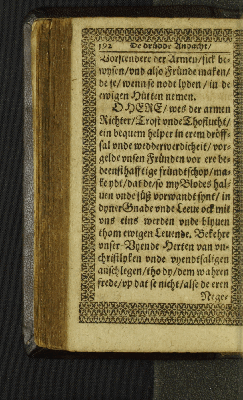 192 De drüdde Andacht/
Vorstendere der Armen/sick be-
wysen/vnd also Fründe maken/
de se/wenn se nodt lyden/in de
ewigen Hütten nemen.
O HERE/wes der armen
Richter/Trost vnde Thoflucht/
ein bequem helper in erem dröff-
sal vnde wedderwerdicheit/vor-
gelde vnsen Fründen vor ere be-
deenstlhafftige fründtschop/ma-
ke ydt/dat de/so my Blodes hal-
uen vnde süß vorwandt synt/in
dyner Gnade vnde Leeue ock mit
vns eins werden vnde blyuen
thom ewigen Leuende. Bekehre
vnser Vyende Herten van vn-
christlyken vnde vyendtsaligen
anschlegen/tho dy/dem wahren
frede/vp dat se nicht/alse de eren
Nege-